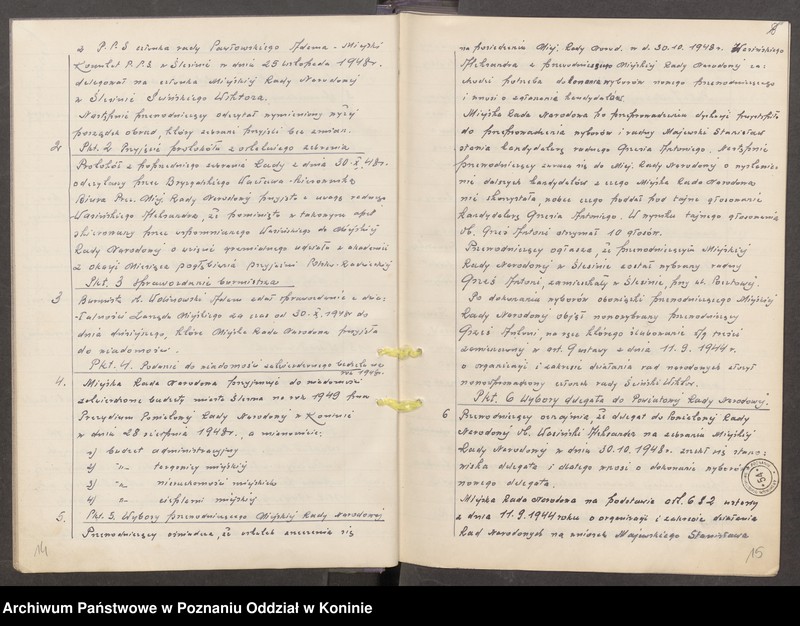 z P.P.S członka rady Pawłowskiego Adama - Miejski
Komitet P.P.S w Ślesinie w dniu 28 listopada 1948 r.
delegował na członka Miejskiej Rady Narodowej
w Ślesinie Siwińskiego Wiktora.
Następnie przewodniczący odczytał wymieniony wyżej
porządek obrad, który zebrani przyjęli bez zmian.
2 Pkt. 2 Przyjęcie protokołu z ostatniego zebrania
Protokół z poprzedniego zebrania Rady z dnia 30.X.48 r.
odczytany przez Wacława - kierownika
Biura Prez. Miej. Rady Narodowej przyjęto z uwagą radnego
Wasińskiego Aleksandra, że pominięto w takowym apel
skierowany przez wspomnianego Wasińskiego do Miejskiej
Rady Narodowej o wzięcie gremialnego udziału w akademii
z okazji Miesiąca pogłębienia przyjaźni Polsko-Radzieckiej
Pkt. 3 Sprawozdanie burmistrza
3 Burmistrz ob. Woźnowski Adam zdał sprawozdanie z dzia-
łalności Zarządu Miejskiego za czas od 30.X.1948 do
dnia dzisiejszego, które Miejska Rada Narodowa przyjęła
do wiadomości.
Pkt. 4. Podanie do wiadomości zatwierdzonego budżetu na
rok 1949 r.
4. Miejska Rada Narodowa przyjmuje do wiadomości
zatwierdzone budżety miasta Ślesina na rok 1949 przez
Prezydium Powiatowej Rady Narodowej w Koninie
w dniu 28 sierpnia 1948 r., a mianowicie:
1) budżet administracyjny
2) -"- targowicy miejskiej
3) -"- nieruchomości miejskich
4) -"- cieplarni miejskiej
5. Pkt. 5. Wybory przewodniczącego Miejskiej Rady Narodowej
Przewodniczący oświadcza, że wskutek zrzeczenia się
14
na posiedzeniu Miej. Rady Narod. w d. 30.10.1948 r. Wasińskiego
Aleksandra z przewodniczącego Miejskiej Rady Narodowej za-
chodzi potrzeba dokonania wyborów nowego przewodniczącego
i wnosi o zgłaszanie kandydatów.
Miejska Rada Narodowa po przeprowadzeniu dyskusji przystąpiła
do przeprowadzenia wyborów i radny Majewski Stanisław
stawia kandydaturę radnego Antoniego. Następnie
przewodniczący zwraca się do Miej. Rady Narodowej o wystawie-
nie dalszych kandydatów z czego Miejska Rada Narodowa
nie skorzystała, wobec czego poddał pod tajne głosowanie
kandydaturę Antoniego. W wyniku tajnego głosowania
ob. Antoni otrzymał 10 głosów.
Przewodniczący ogłasza, że przewodniczącym Miejskiej
Rady Narodowej w Ślesinie został wybrany radny
Antoni, zamieszkały w Ślesinie, przy ul. Pocztowej.
Po dokonaniu wyborów obowiązki przewodniczącego Miejskiej
Rady Narodowej objął nowowybrany przewodniczący
Antoni, na ręce którego ślubowanie wg treści
zamieszczonej w art. 9 ustawy z dnia 11.9.1944 r.
o organizacji i zakresie działania rad narodowych złożył
nowowprowadzony członek rady Siwiński Wiktor.
Pkt. 6 Wybory delegata do Powiatowej Rady Narodowej
6 Przewodniczący oznajmia, że delegat do Powiatowej Rady
Narodowej ob. Wasiński Aleksander na zebraniu Miejskiej
Rady Narodowej w dniu 30.10.1948 r. zrzekł się stano-
wiska delegata i dlatego wnosi o dokonanie wyborów
nowego delegata.
Miejska Rada Narodowa na podstawie art. 6 i 2 ustawy
z dnia 11.9.1944 roku o organizacji i zakresie działania
Rad Narodowych na wniosek Majewskiego Stanisława
54
15
Archiwum Państwowe w Poznaniu Oddział w Koninie